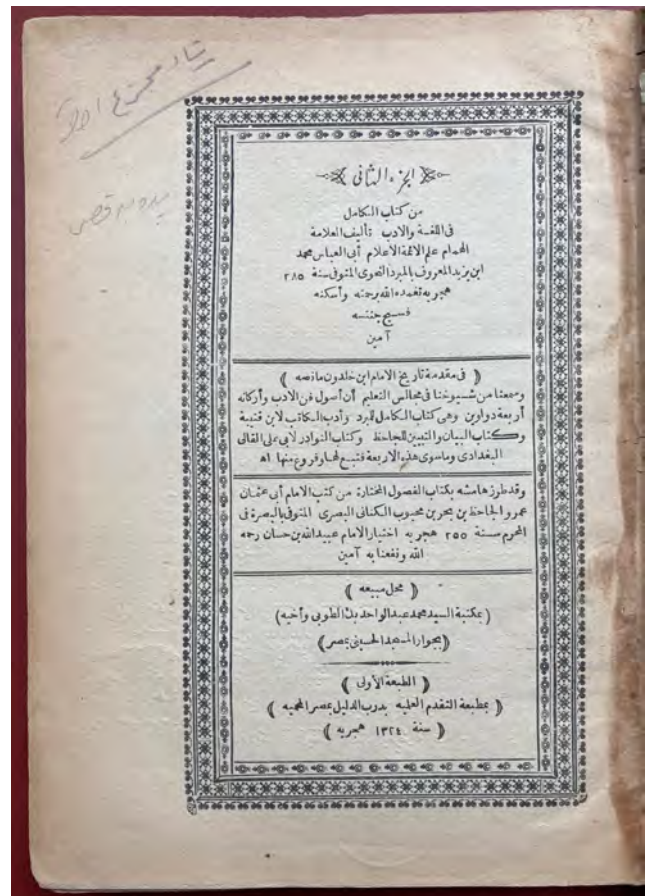 الجزء الثاني
من كتاب الكامل
في اللغة والادب تأليف العلامة
الهمام علم الائمة الأعلام أبي العباس محمد
ابن يزيد المعروف بالمبرد النحوي المتوفي سنة ٢٨٥
هجريه تغمده الله برحمته وأسكنه
فسيح جنته
آمين
﴿ في مقدمة تاريخ الامام ابن خلدون مانصه ﴾
وسمعنا من شيوخنا في مجالس التعليم أن أصول فن الادب وأركانه
أربعة دواوين وهي كتاب الكامل للمبرد وأدب الكاتب لابن قتيبة
وكتاب البيان والتبيين للجاحظ وكتاب النوادر لابي على القالى
البغدادى وماسوى هذه الاربعة فتبع لها وفروع منها اه
وقد طرز هامشه بكتاب الفصول المختارة من كتب الامام أبي عثمان
عمرو الجاحظ بن بحر بن محبوب الكنانى البصرى المتوفى بالبصرة فى
المحرم سنة ٢٥٥ هجريه اختيار الامام عبيد الله بن حسان رحمه
الله ونفعنا به آمين
﴿ محل مبيعه ﴾
(بمكتبة السيد محمد عبد الواحد بك الطوبى وأخيه)
(بجوار المسجد الحسينى بمصر)
﴿ الطبعة الأولى ﴾
﴿ بمطبعة التقدم العلميه بدرب الدليل بمصر المحميه ﴾
﴿ سنة ١٣٢٤ هجريه ﴾